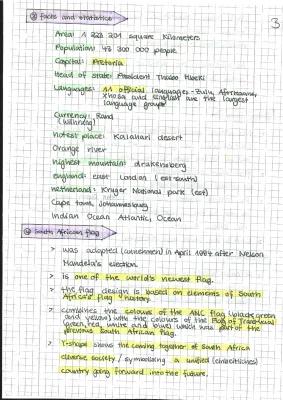 3
① facts and statistics
Area: 1 223 201 square Kilometers
Population: 43 300 000 people
Capital: Pretoria
Head of state: President Thabo Mbeki
Languages: 11 official languages - Zulu, Afrikaans,
Xhosa and English are the largest
language groups
Currency: Rand
(Währung)
hotest place: Kalahari desert
Orange river
highest mountain: drakensberg
england: east London (est south)
netherland: Kruger National park (est)
Cape town, Johannesburg
Indian Ocean Atlantic, Ocean
② South African flag
> was adopted (annehmen) in April 1994 after Nelson
Mandela's election.
> is one of the world's newest flag.
> the flag design is based on elements of South
Africa's flag history.
> combines the colours of the ANC flag (black, green
and yellow) with the colours of the Traditional
(green, red, white and blue) which was part of the
previous South African flag.
> Y-shape shows the coming together of South Africa
diverse society / symbolising a unified (einheitliches)
country going forward into the future.